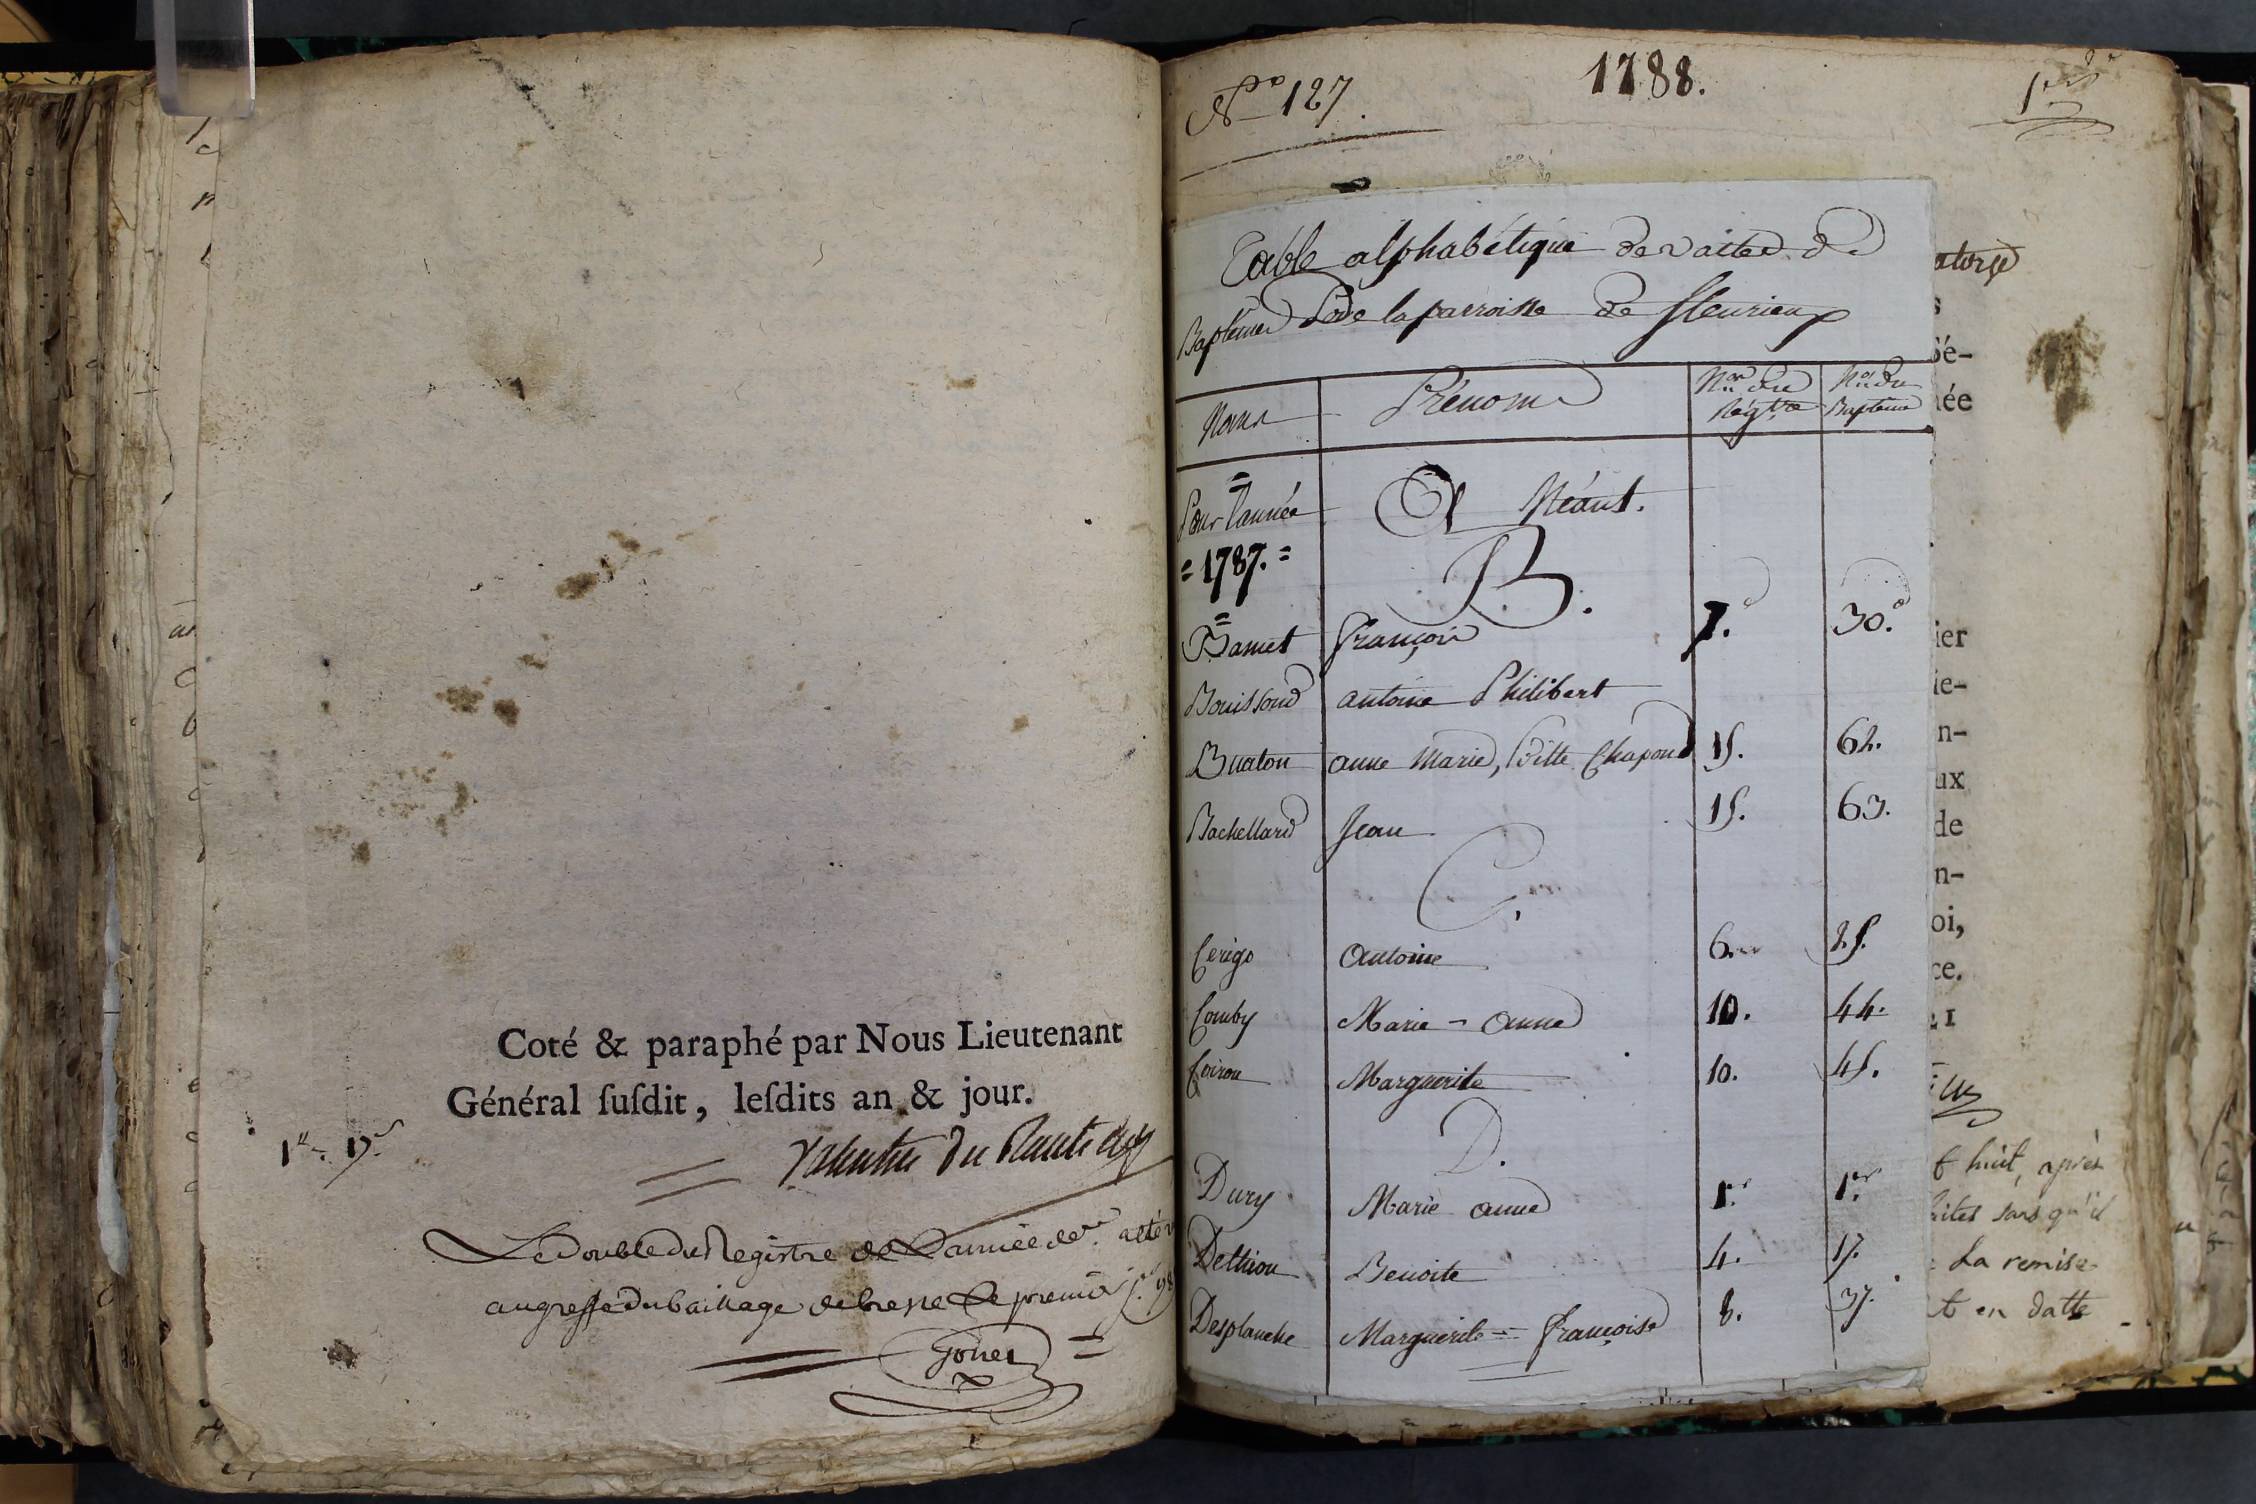 Coté & paraphé par Nous Lieutenant
Général suſdit, leſdits an & jour.
Le Double du Registre de L'année
au greffe du bailliage de bresse Le premier
N.o 127.
1788.
Table alphabétique des actes de
Baptêmes de la parroisse de fleurieux
Noms Prénoms N.os du Régtre N.os du Baptême
Pour l'année A Néant.
= 1787. =
B.
Bamet françois 7. 30.
Bouissoud antoine Philibert
Buaton anne Marie, ditte Chapond 15. 62.
Bachellard Jean 15. 63.
C.
Cerigo Antoine 6. 25.
Comby Marie = anne 10. 44.
Coiron Marguerite 10. 45.
D.
Dury Marie anne 1er 1er
Dethion Benoite 4. 17.
Desplanche Marguerite = françoise 8. 37.
atorze
s
Sé-
née
ier
ie-
n-
ux
de
n-
oi,
ce.
t huit, après
faites sans qu'il
La remise
t en datte